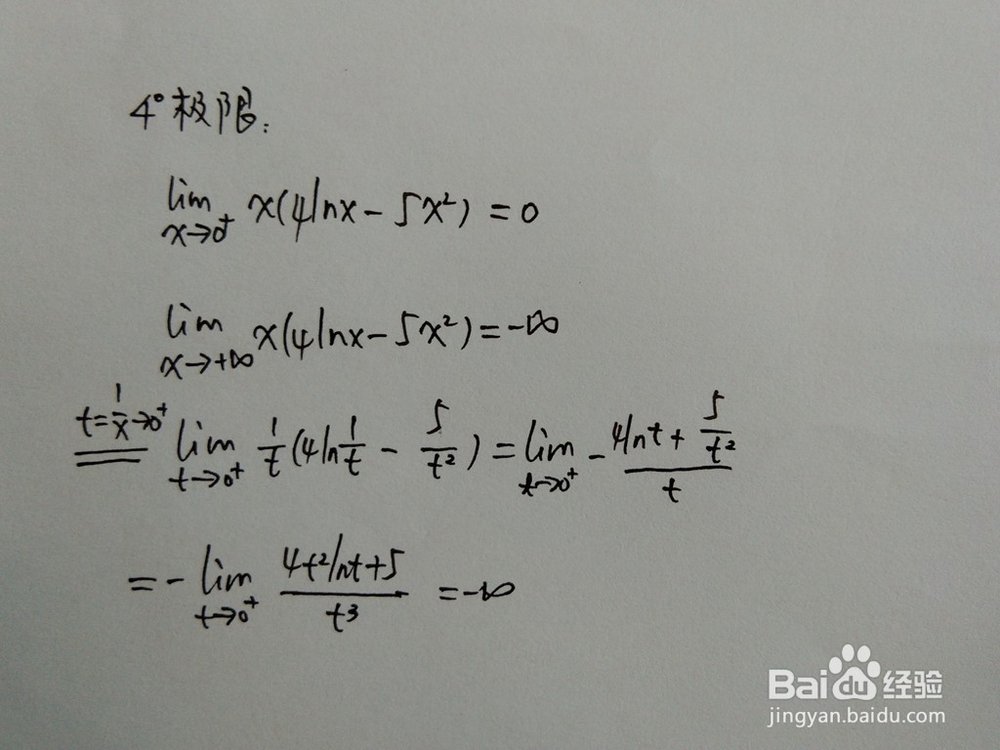 4°极限:
lim x→0⁺ x(4lnx - 5x²) = 0
lim x→+∞ x(4lnx - 5x²) = -∞
t=1/x→0⁺ == lim t→0⁺ 1/t (4ln 1/t - 5/t²) = lim t→0⁺ - (4lnt + 5/t²)/t
= - lim t→0⁺ (4t²lnt+5)/t³ = -∞
Baidu经验
jingyan.baidu.com